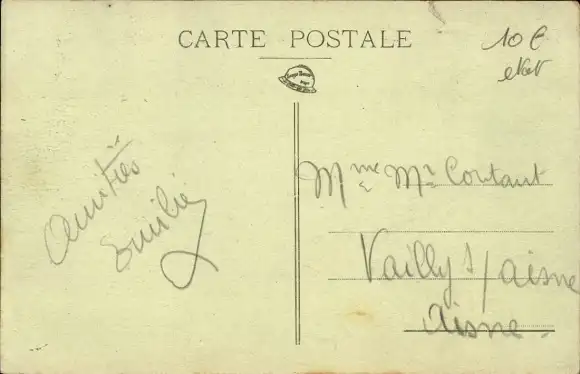 CARTE POSTALE
10 €
Amitiés
Emilie
Mme Mr Coutant
Vailly s/aisne
Aisne